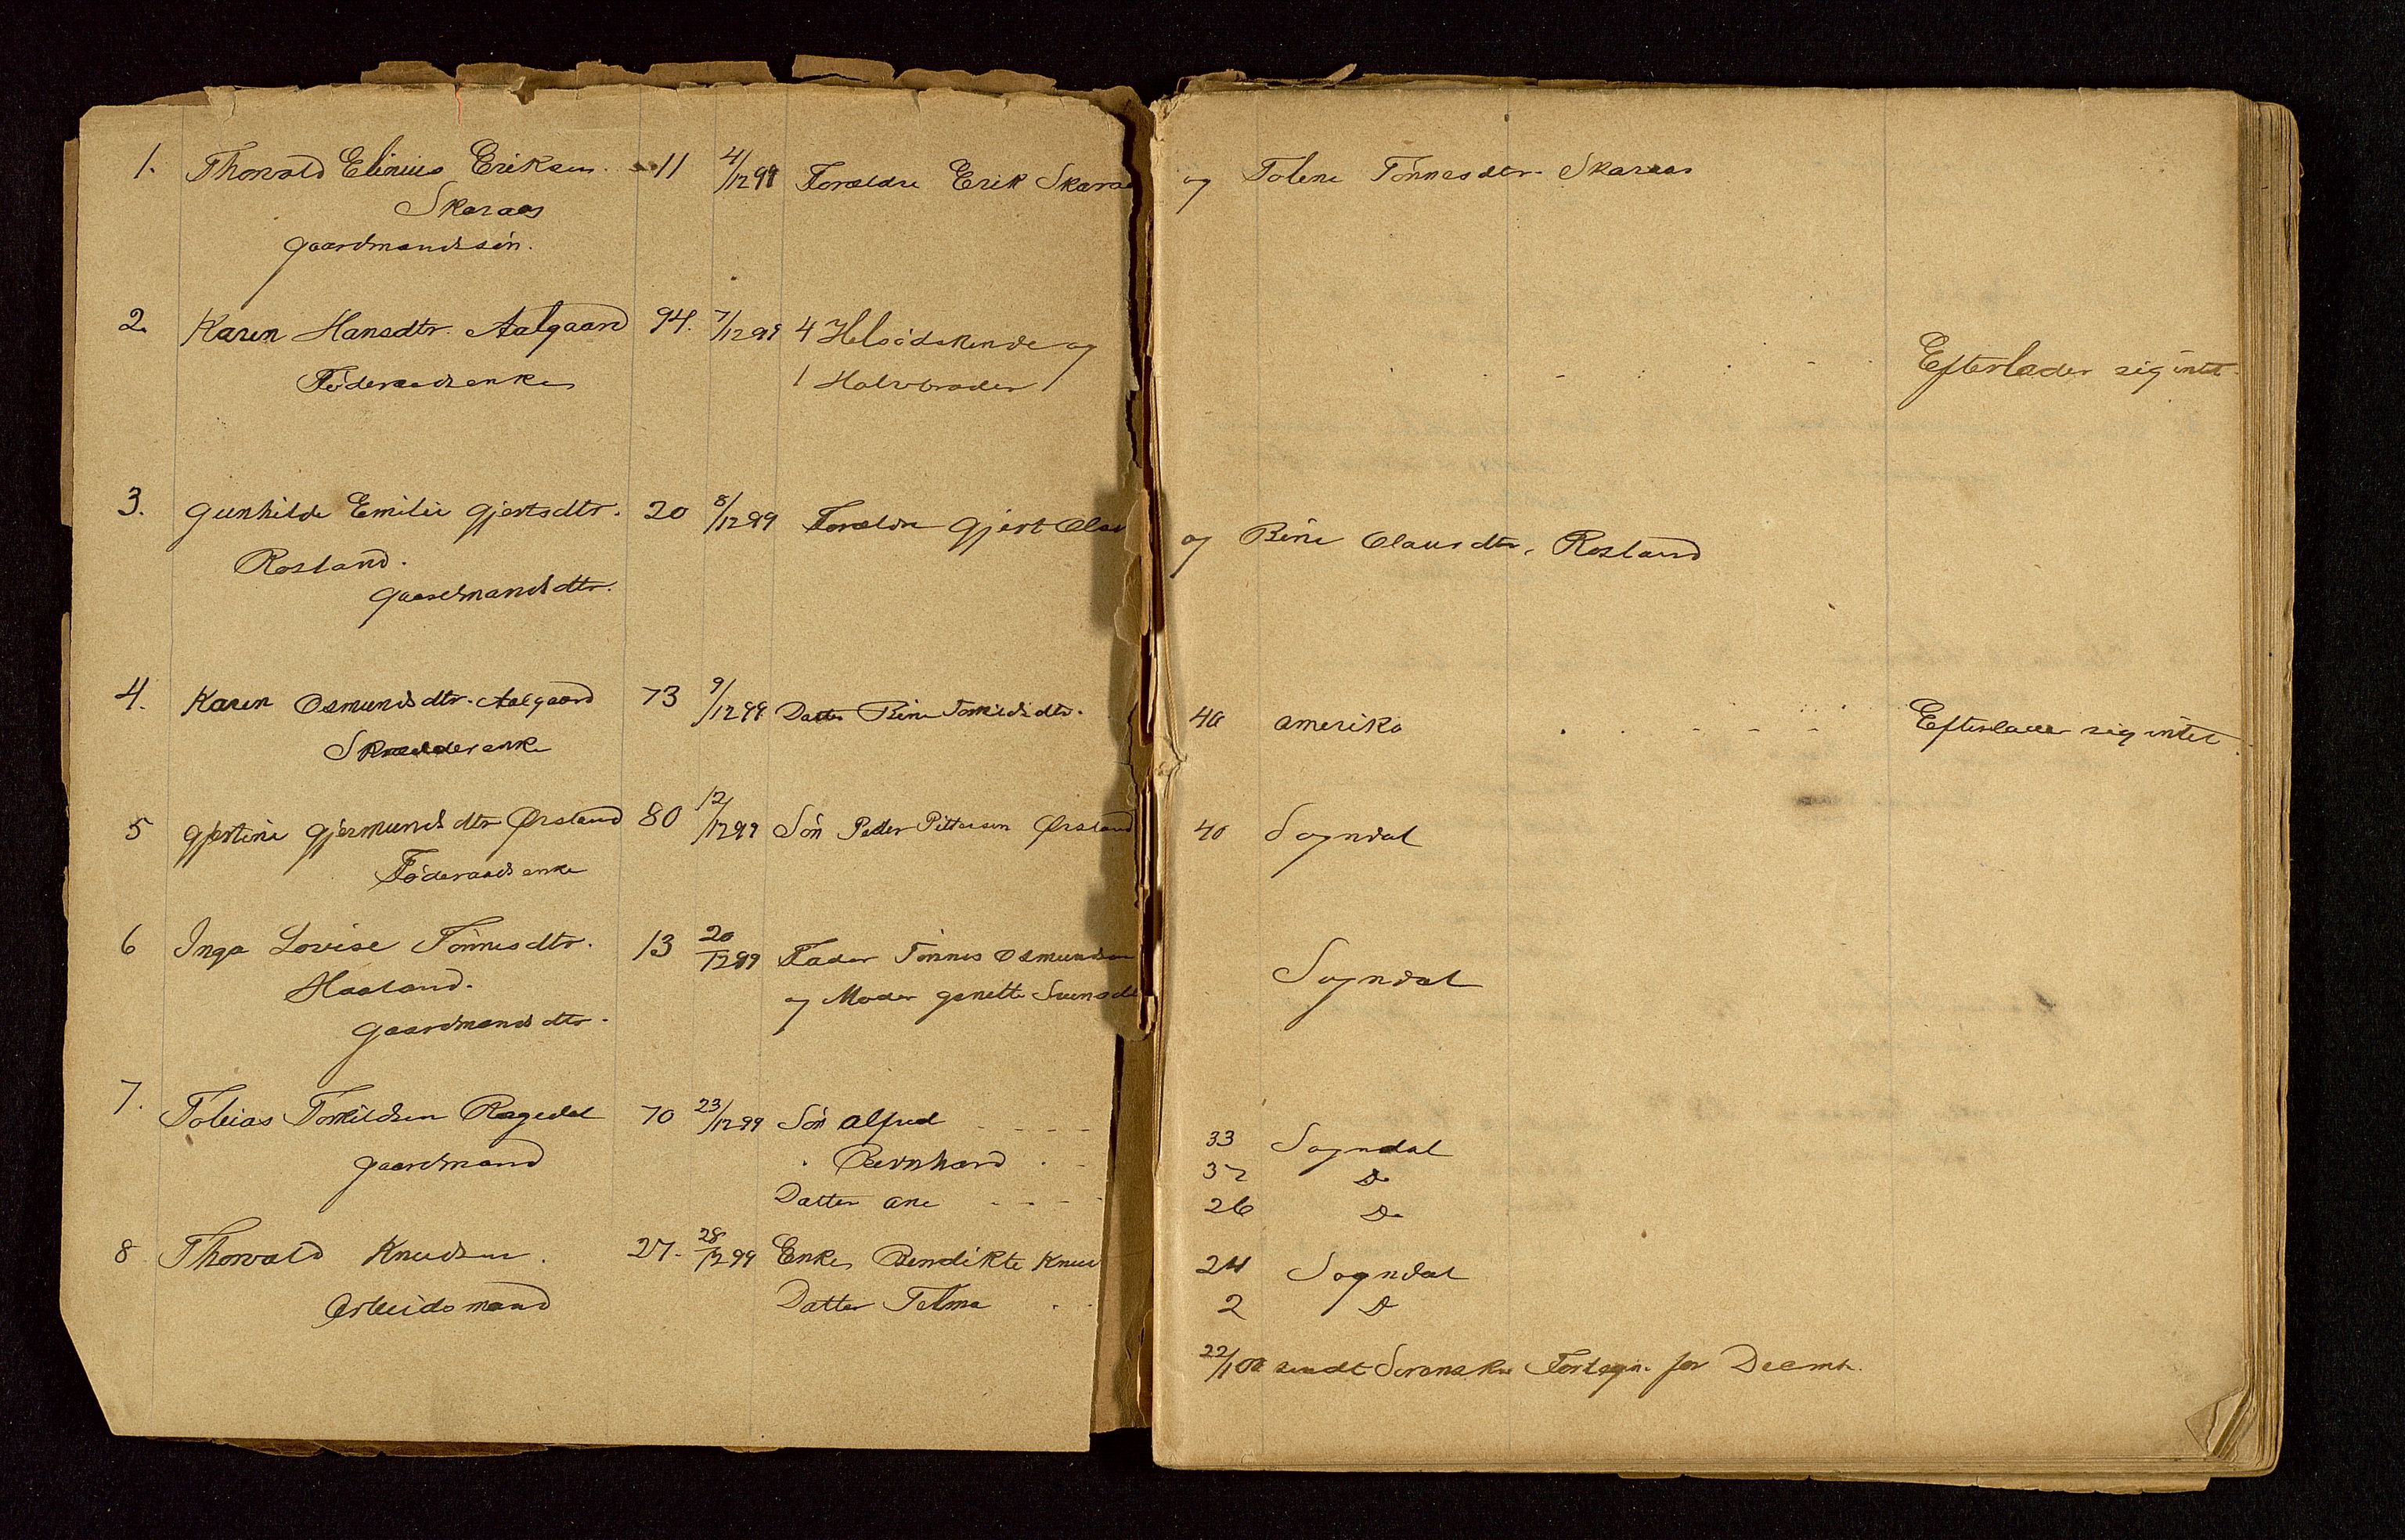 1. Thorvald Elinius Eriksen. 11 4/12 99 Forældre Erik Skaraa og Tolene Tønnesdtr. Skaraas
Skaraas
Gaardmandssøn.
2. Karen Hansdtr. Aalgaard 94. 7/12 99 4 Helsødskende og
Føderaadsenke 1 Halvbroder Efterlader sig intet.
3. Gunhilde Emilie Gjertsdtr. 20 8/12 99 Forældre Gjert Olau og Bine Olausdtr. Rosland
Rosland.
Gaardmandsdtr.
4. Karen Osmundsdtr. Aalgaard 73 9/12 99 Datter Bine Torkildsdtr. 40 Amerika Efterlader sig intet.
Skrædderenke
5 Gjertine Gjermundsdtr Ørsland 80 12/12 99 Søn Peder Pettersen Ørsland 40 Sogndal
Føderaadsenke
6 Inga Lovise Tønnesdtr. 13 20/12 99 Fader Tønnes Osmundsen
Haaland. og Moder Sogndal
Gaardmandsdtr.
7. Tobias Torkildsen Ragedal 70 23/12 99 Søn Alfred 33 Sogndal
Gaardmand Bernhard 32 Do
Datter Ane 26 Do
8 Thorvald Knudsen. 27. 28/12 99 Enke Bendikte Knud 24 Sogndal
Arbeidsmand Datter Telma 2 Do
22/1 00 sendt Sorensk. Fortegn. for Decmb.